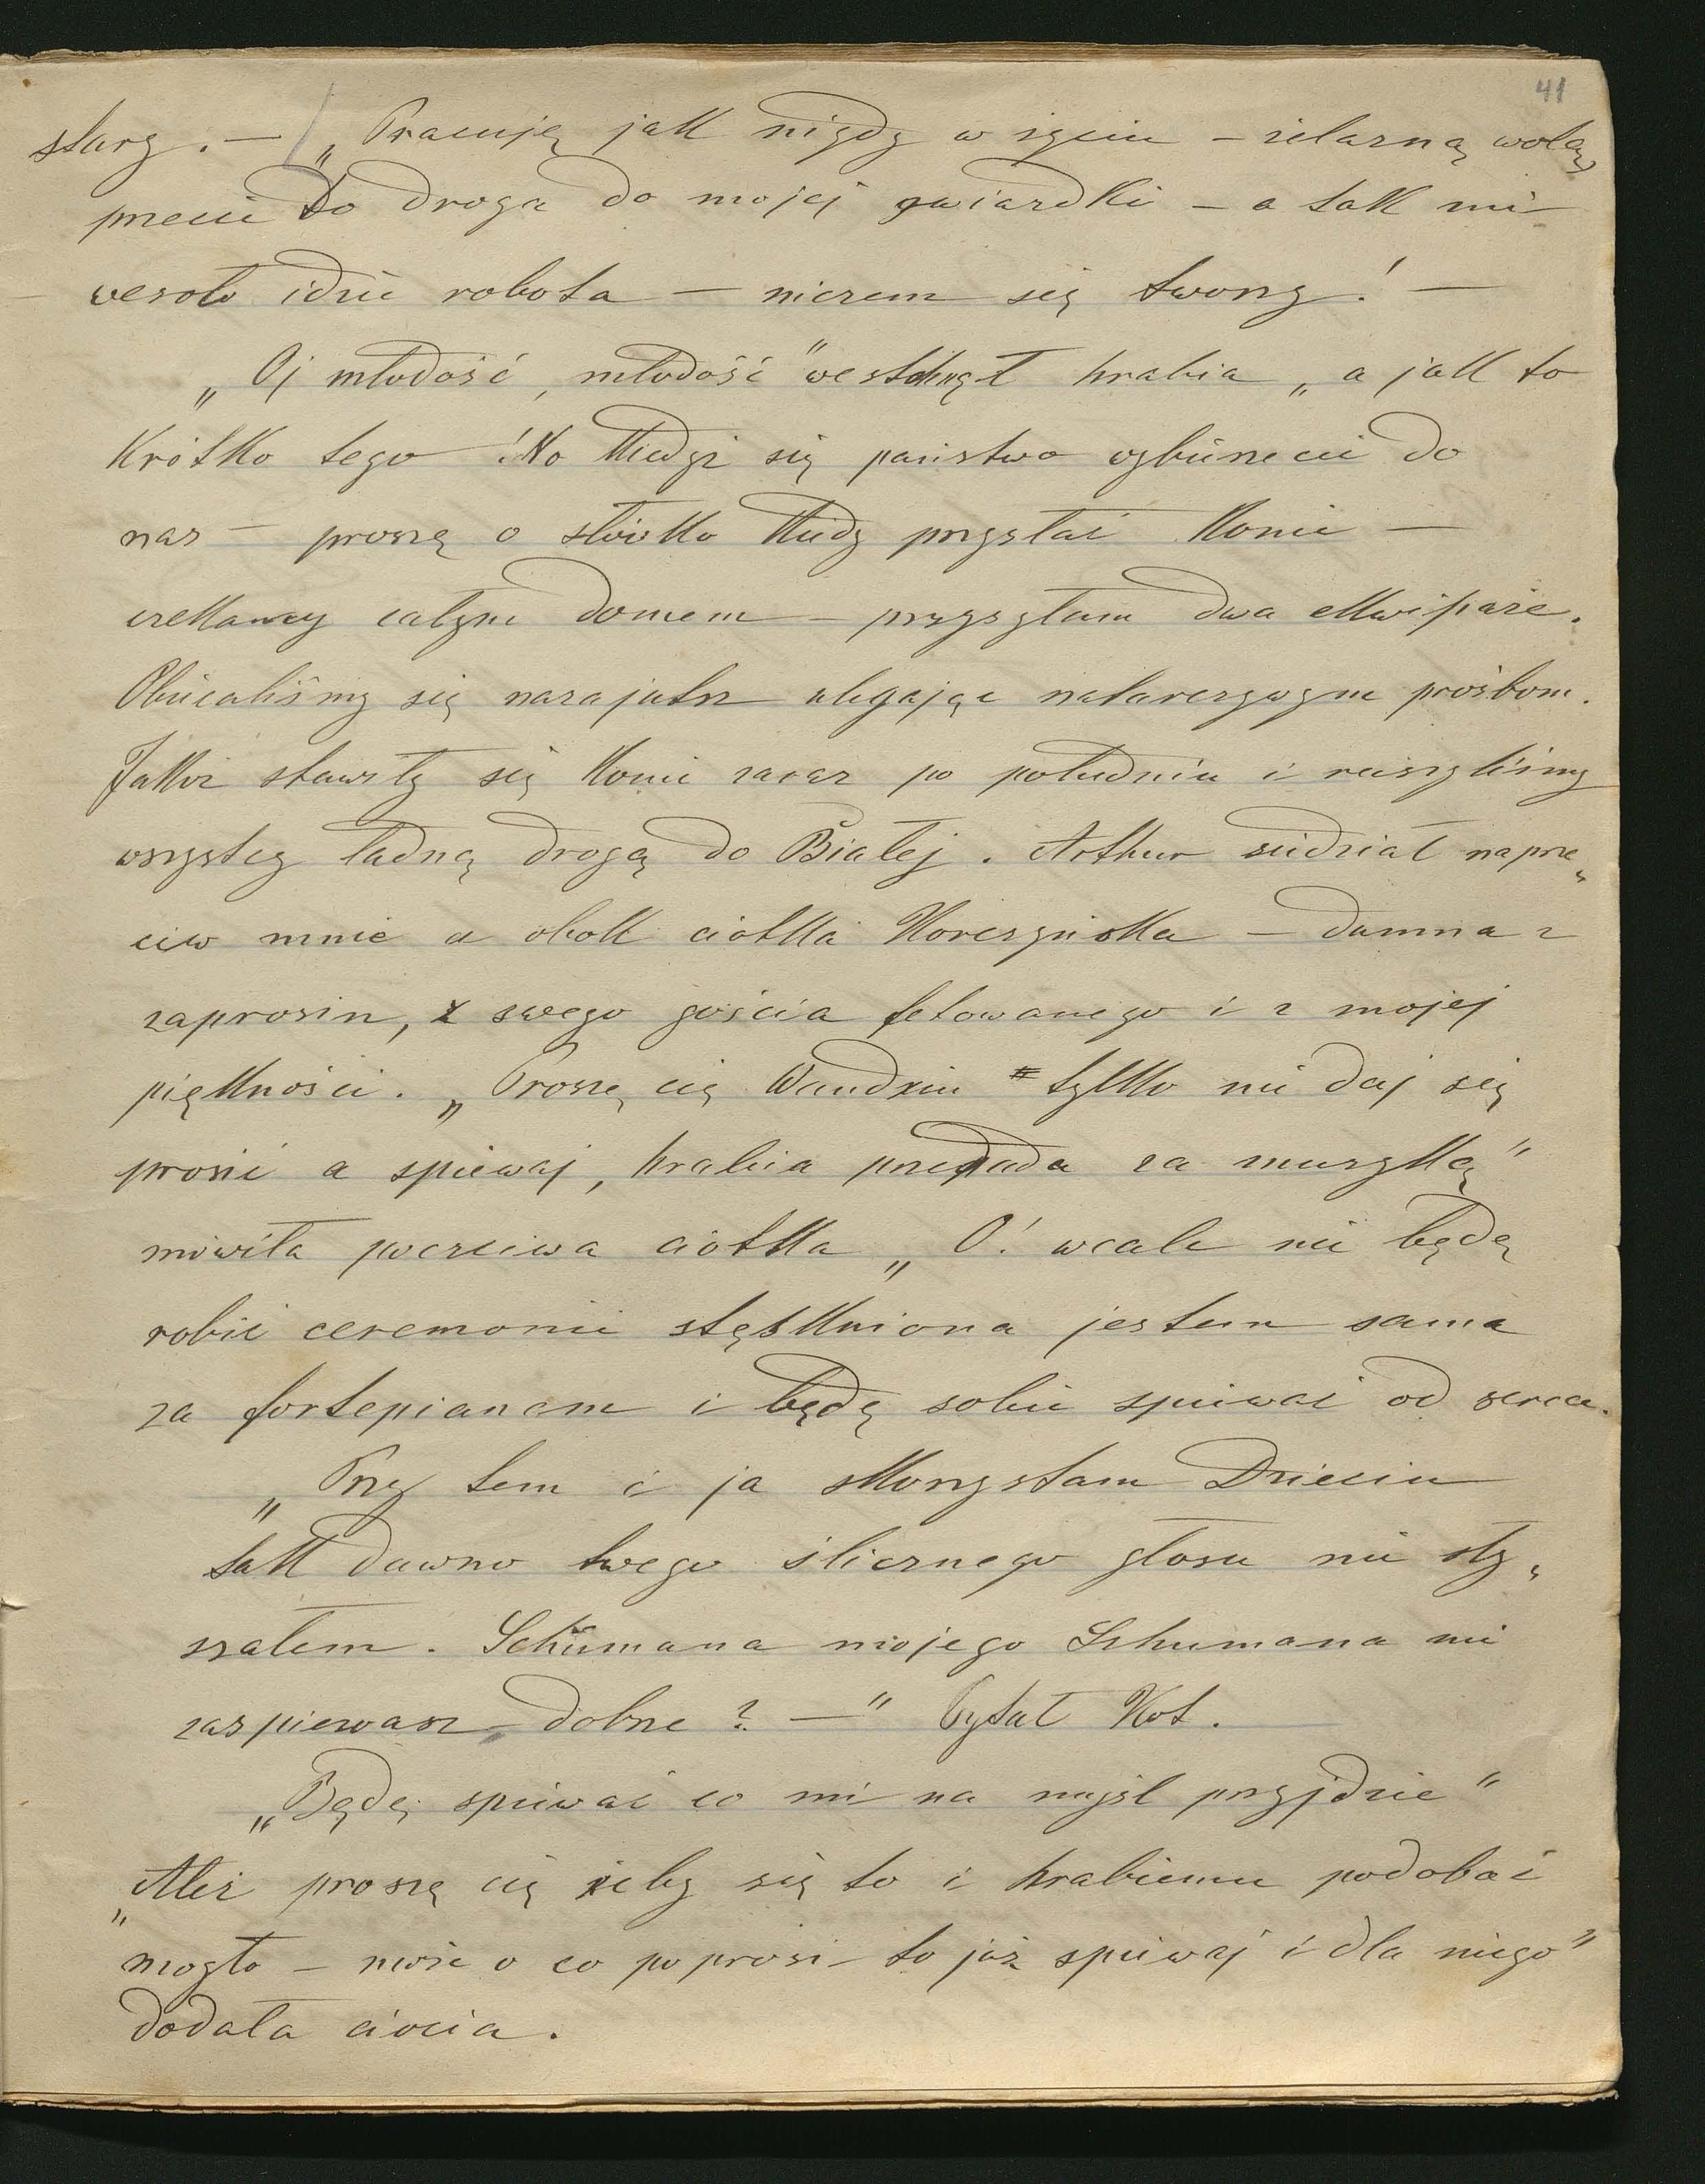 41
stary. — „Pracuję jak nigdy w życiu – żelazną wolą,
przecie to droga do mojej gwiazdki – a tak mi
wesoło idzie robota – niczem się tworzy! —
„Oj młodość, młodość" westchnął hrabia „a jak to
krótko tego! No kiedyż się państwo wybierzecie do
nas – proszę o słówko kiedy przysłać konie —
czekamy całym domem – przysyłam dwa ekwipaże.
Obiecaliśmy się nazajutrz ulegając natarczywym prośbom.
Jakoż stawiły się konie zaraz po południu i ruszyliśmy
wszyscy ładną drogą do Białej. Arthur siedział naprze„
ciw mnie a obok ciotka Korczyńska – dumna z
zaprosin, z swego gościa fetowanego i z mojej
piękności. „Proszę cię Wandziu tylko nie daj się
prosić a spiewaj, hrabia przepada za muzyką"
mówiła poczciwa ciotka „O! wcale nie będę
robić ceremonii stęskniona jestem sama
za fortepianem i będę sobie spiewać od serca.
„Przy tem i ja skorzystam Dzieciu
tak dawno twego ślicznego głosu nie sły„
szałem. Schumana mojego Schumana mi
zaspiewasz, dobrze? —" Pytał Kot.
„Będę spiewać co mi na myśl przyjdzie"
„Ależ proszę cię żeby się to i hrabiemu podobać
mogło – może o co poprosi – to już spiewaj i dla niego"
dodała ciocia.